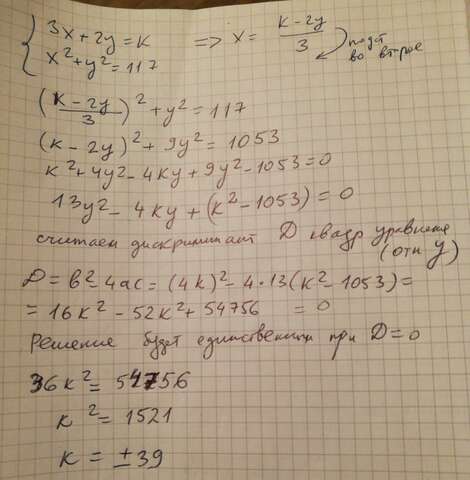 { 3x + 2y = k => x = (k - 2y)/3 подст
x² + y² = 117 во второе
((k - 2y)/3)² + y² = 117
(k - 2y)² + 9y² = 1053
k² + 4y² - 4ky + 9y² - 1053 = 0
13y² - 4ky + (k² - 1053) = 0
считаем дискриминант D квадр уравнение
(отн y)
D = b² - 4ac = (4k)² - 4·13(k² - 1053) =
= 16k² - 52k² + 54756 = 0
Решение будет единственным при D = 0
36k² = 54756
k² = 1521
k = ± 39